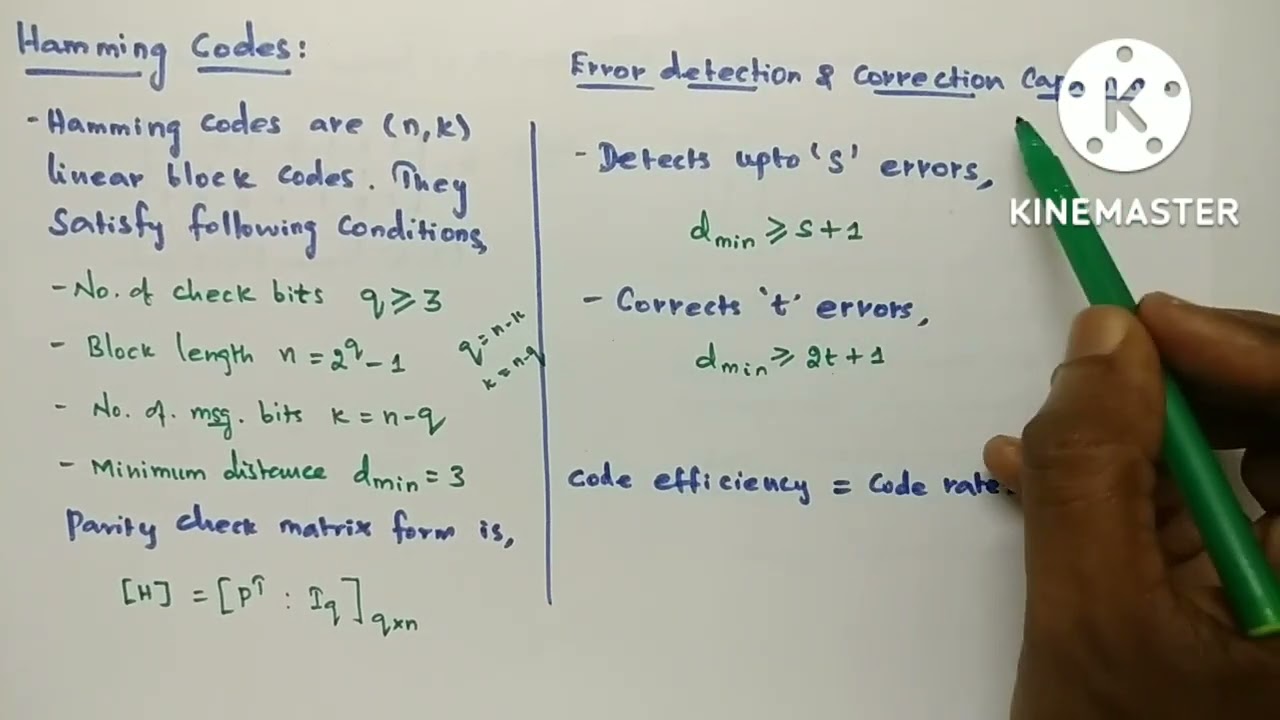 Hamming Codes:
- Hamming codes are (n,k)
linear block codes. They
satisfy following conditions,
- No. of check bits q ⩾ 3
- Block length n = 2^q - 1
q = n-k
k = n-q
- No. of. msg. bits k = n-q
- Minimum distance d_min = 3
Parity check matrix form is,
[H] = [P^T : I_q]_q×n
Error detection & Correction
- Detects upto 's' errors,
d_min ⩾ s+1
- Corrects 't' errors,
d_min ⩾ 2t+1
Code efficiency = Code rate.
K
KINEMASTER